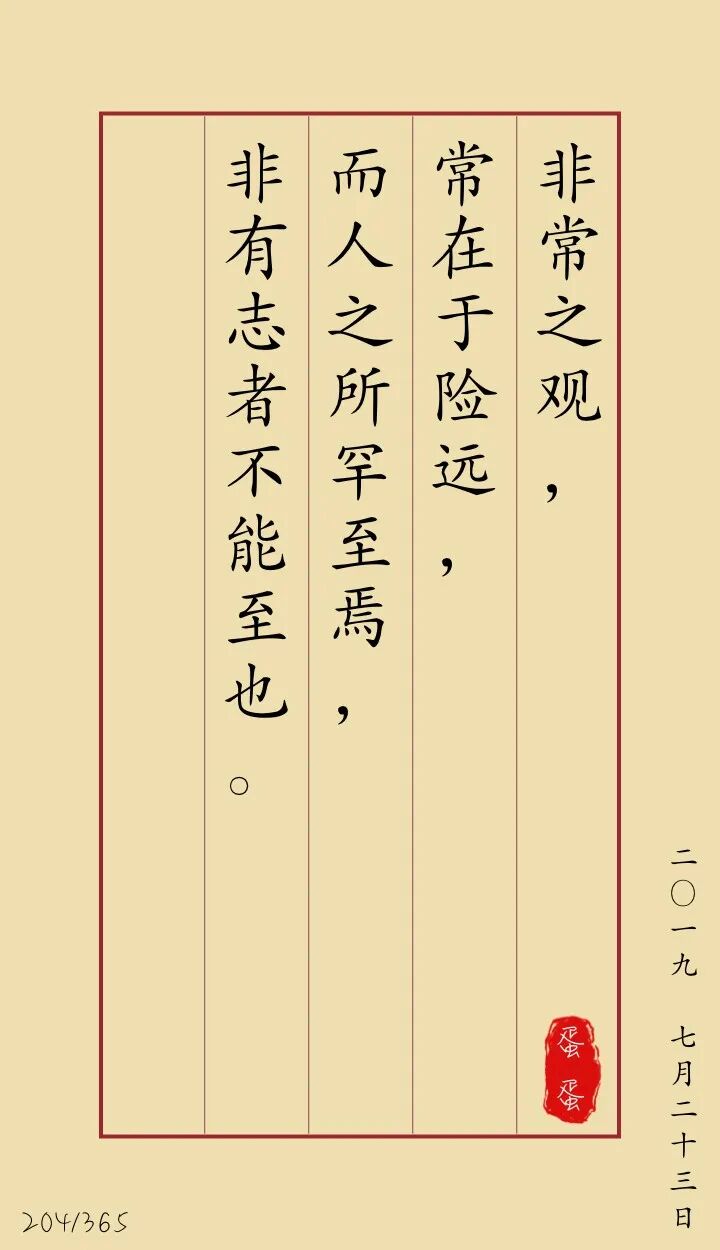 非常之观，
常在于险远，
而人之所罕至焉，
非有志者不能至也。
蛋蛋
二〇一九 七月二十三日
204/365